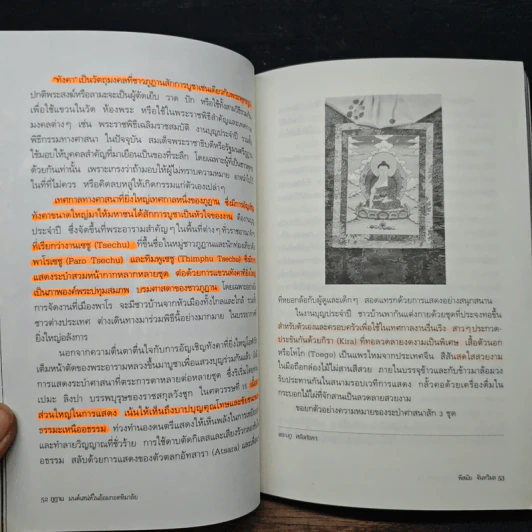 "ทังคา" เป็นวัตถุมงคลที่ชาวภูฏานสักการบูชาเช่นเดียวกับพระพุทธรูป
ปกติพระสงฆ์หรือลามะจะเป็นผู้ตัดเย็บ วาด ปัก หรือใช้ทั้งสามวิธีร่วมกัน
เพื่อใช้แขวนในวัด ห้องพระ หรือใช้ในพระราชพิธีสำคัญและเทศกาล
มงคลต่างๆ เช่น พระราชพิธีเฉลิมราชสมบัติ งานบุญประจำปี รวมทั้ง
พิธีกรรมทางศาสนา ในปัจจุบัน สมเด็จพระราชาธิบดีหรือรัฐมนตรี
ใช้มอบให้บุคคลสำคัญที่มาเยือนเป็นของที่ระลึก โดยเฉพาะผู้ที่เป็นชาวพุทธ
ด้วยกันเท่านั้น เพราะเกรงว่าถ้ามอบให้ผู้ไม่ทราบความหมาย อาจนำไป
ในที่ที่ไม่ควร หรือคิดลบหลู่ให้เกิดกรรมแก่ตัวเองเปล่าๆ
เทศกาลทางศาสนาที่ยิ่งใหญ่เทศกาลหนึ่งของภูฏาน ซึ่งมีการอัญเชิญ
ทังคาขนาดใหญ่มาให้มหาชนได้สักการบูชาเป็นหัวใจของงาน คือ
ประจำปี ซึ่งจัดขึ้นที่พระอารามสำคัญๆ ในพื้นที่ต่างๆ ทั่วราชอาณาจักร
ที่เรียกว่างานเซชู (Tsechu) ที่ขึ้นชื่อในหมู่ชาวภูฏานและนักท่องเที่ยว
พาโรเซชู (Paro Tsechu) และทิมพูเซชู (Thimphu Tsechu) ซึ่งมีการ
แสดงระบำสวมหน้ากากหลากหลายชุด ต่อด้วยการแขวนทังคาซึ่ง
เป็นภาพองค์พระปทุมสมภพ บรมศาสดาของชาวภูฏาน โดยเฉพาะ
การจัดงานที่เมืองพาโร จะมีชาวบ้านจากหัวเมืองทั้งไกลและใกล้ รวมทั้ง
ชาวต่างประเทศ ต่างเดินทางมาร่วมพิธีนี้อย่างมากมาย ในบรรยากาศ
ยิ่งใหญ่อลังการ
นอกจากความตื่นตาตื่นใจกับการอัญเชิญทังคาที่ยิ่งใหญ่
เต็มหน้าตัดของพระอารามหลวงขึ้นมาบูชาเพื่อแสวงบุญร่วมกันแล้ว ยังมี
การแสดงระบำศาสนาที่ตระการตาหลายต่อหลายชุด ซึ่งริเริ่มโดย
เปมะ ลิงปา บรรพบุรุษของราชสกุลวังชุก ในศตวรรษที่ 15 เนื้อหา
ส่วนใหญ่ในการแสดง เน้นให้เห็นถึงบาปบุญคุณโทษและชัยชนะของ
ธรรมะเหนืออธรรม ท่วงทำนองดนตรีแสดงให้เห็นพลังในการเหยียบ
และทำลายวิญญาณที่ชั่วร้าย การใช้ดาบตัดกิเลสและเสียงรัวกลอง
อธรรม สลับด้วยการแสดงของตัวตลกอัทสารา (Atsara)
52 ภูฏาน มนต์เสน่ห์ในอ้อมกอดหิมาลัย
ที่หยอกล้อกับผู้ดูและเด็กๆ สอดแทรกด้วยการแสดงอย่างสนุกสนาน
ในงานบุญประจำปี ชาวบ้านพากันแต่งกายด้วยชุดที่ประจงทอขึ้น
สำหรับตัวเองและครอบครัวเพื่อใช้ในเทศกาลงานรื่นเริง สาวๆ ประกวด
ประชันกันด้วยกีรา (Kira) ที่ทอลวดลายงดงามเป็นพิเศษ เสื้อตัวนอก
หรือโทโก (Toego) เป็นแพรไหมจากประเทศจีน สีสันสดใสสวยงาม
ในมือถือกล่องไม้ไผ่สานสีสวย ภายในบรรจุข้าวและกับข้าวมาล้อมวง
รับประทานกันในสนามรอบเวทีการแสดง กลั้วคอด้วยเครื่องดื่มใน
กระบอกไม้ไผ่ที่จักสานเป็นลวดลายสวยงาม
ขอยกตัวอย่างความหมายของระบำศาสนาสัก 3 ชุด
53